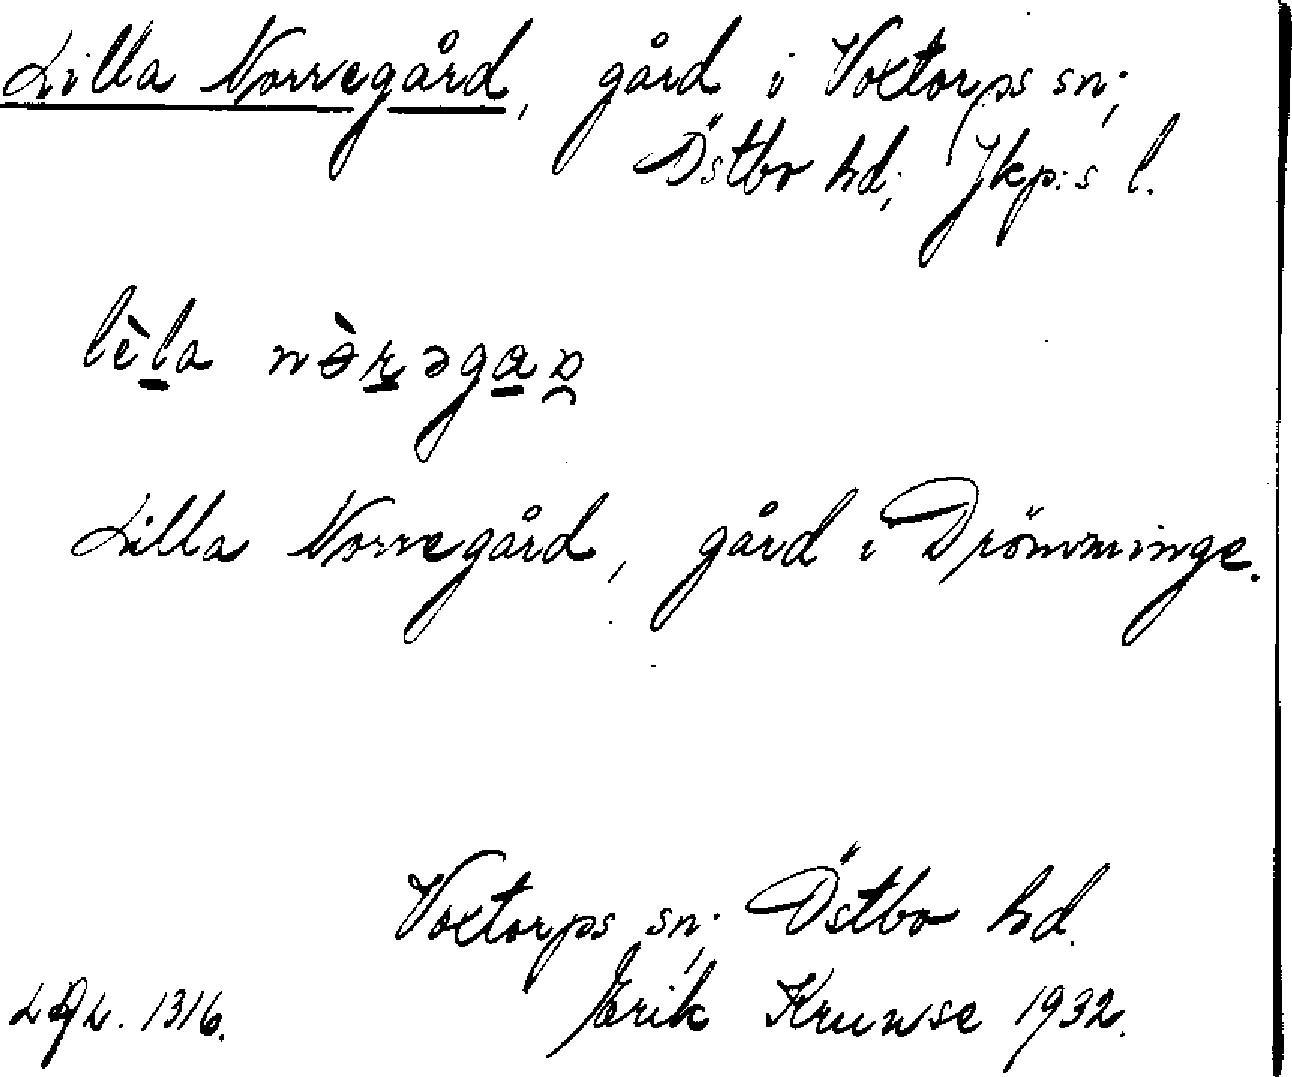 Lilla Norregård, gård i Voxtorps sn;
Östbo hd; Jkp:s l.
lèla nɵ̀rəgaɒ
Lilla Norregård, gård i Drömminge.
Voxtorps sn; Östbo hd.
Erik Krunse 1932.
1316.